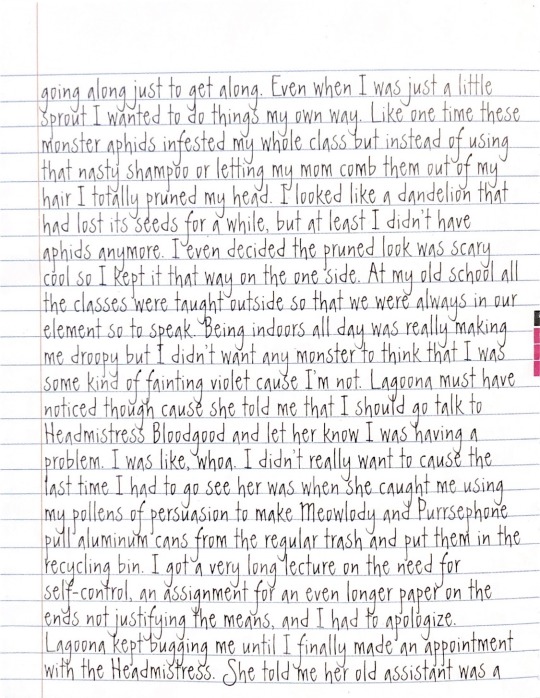 going along just to get along. Even when I was just a little
sprout I wanted to do things my own way. Like one time these
monster aphids infested my whole class but instead of using
that nasty shampoo or letting my mom comb them out of my
hair I totally pruned my head. I looked like a dandelion that
had lost its seeds for a while, but at least I didn't have
aphids anymore. I even decided the pruned look was scary
cool so I kept it that way on the one side. At my old school all
the classes were taught outside so that we were always in our
element so to speak. Being indoors all day was really making
me droopy but I didn't want any monster to think that I was
some kind of fainting violet cause I'm not. Lagoona must have
noticed though cause she told me that I should go talk to
Headmistress Bloodgood and let her know I was having a
problem. I was like, whoa. I didn't really want to cause the
last time I had to go see her was when she caught me using
my pollens of persuasion to make Meowlody and Purrsephone
pull aluminum cans from the regular trash and put them in the
recycling bin. I got a very long lecture on the need for
self-control, an assignment for an even longer paper on the
ends not justifying the means, and I had to apologize.
Lagoona kept bugging me until I finally made an appointment
with the Headmistress. She told me her old assistant was a